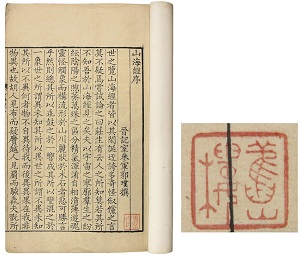 山海經序
晉記室參軍郭璞撰
世之覽山海經者皆以其閎誕迂誇多奇怪俶儻之言
莫不疑焉嘗試論之曰莊生有云人之所知莫若其所
不知吾於山海經見之矣夫以宇宙之寥廓群生之紛
紜陰陽之煦蒸萬殊之區分精氣渾淆自相濆薄遊魂
靈怪觸象而構流形於山川麗狀於木石者惡可勝言
乎然則總其所以乖鼓之於一響成其所以變混之於
一象世之所謂異未知其所以異世之所謂不異未知
其所以不異何者物不自異待我而後異異果在我非
物異也故胡人見布而疑黂越人見罽而駭毳夫翫所